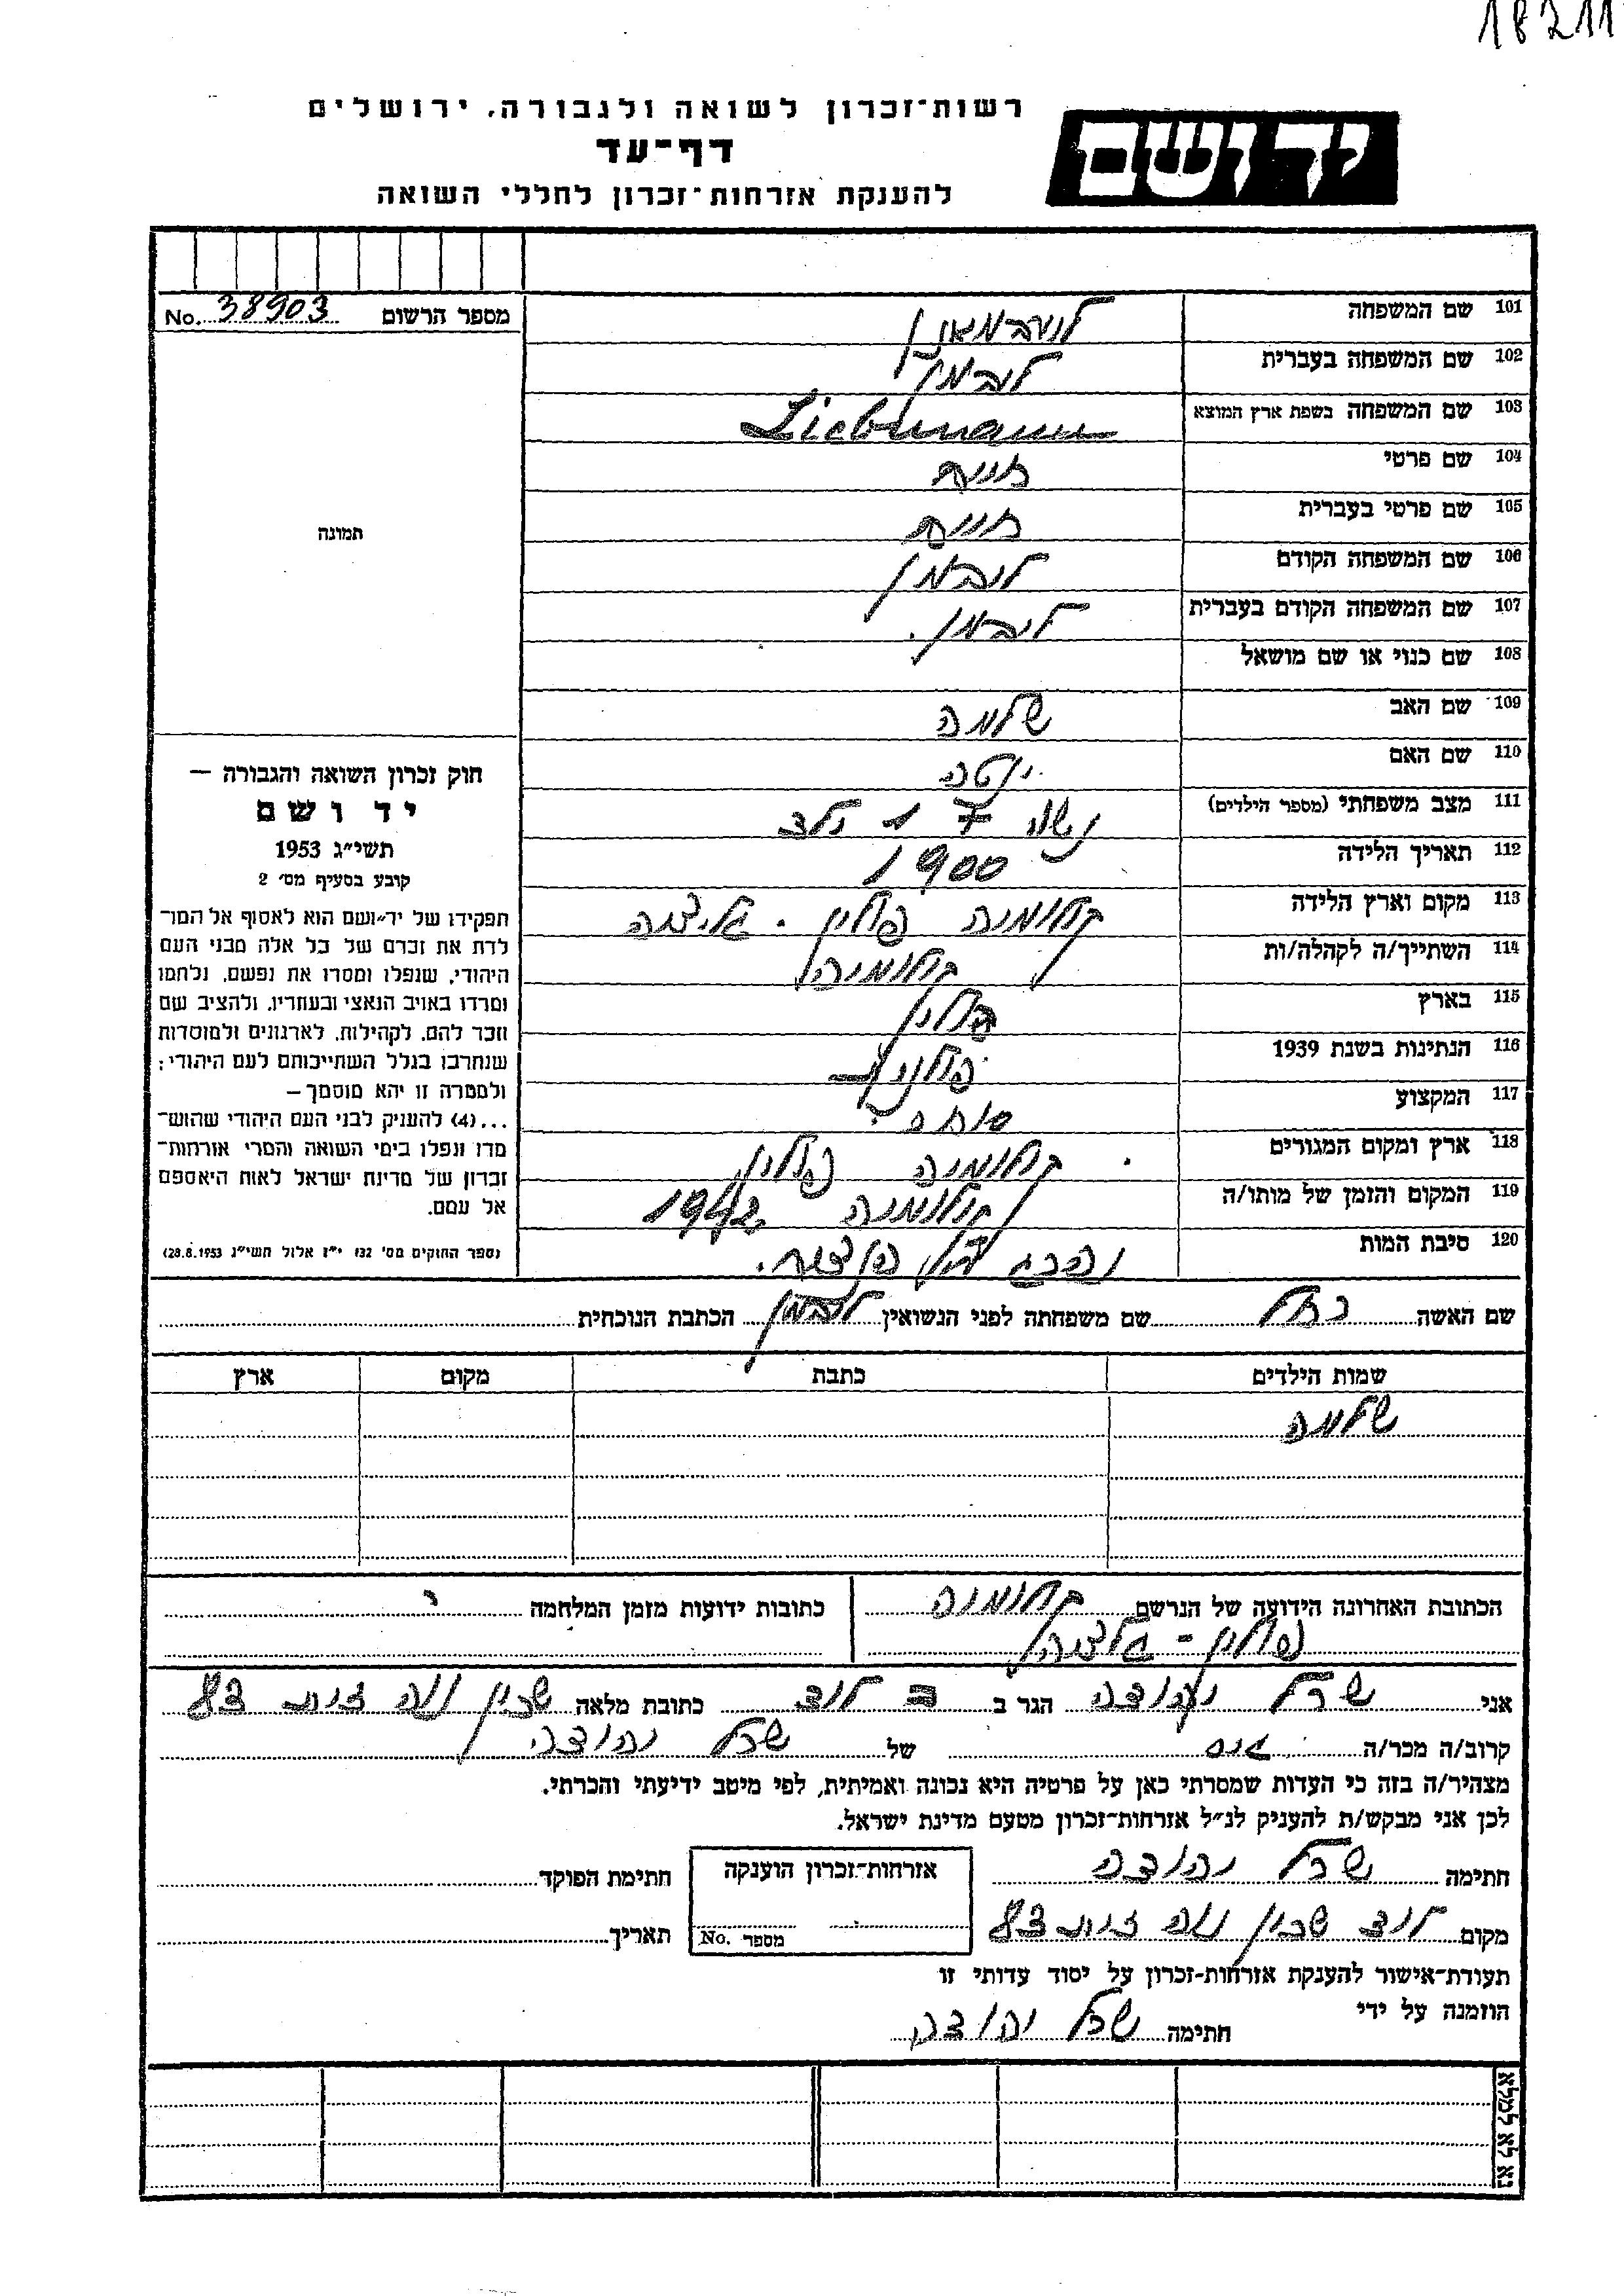 18211
רשות־זכרון לשואה ולגבורה, ירושלים
דף־עד
להענקת אזרחות־זכרון לחללי השואה
יד ושם
מספר הרשום No. 38903
101 שם המשפחה ליברמאן
102 שם המשפחה בעברית ליברמן
103 שם המשפחה בשפת ארץ המוצא Liebermann
104 שם פרטי חיים
105 שם פרטי בעברית חיים
106 שם המשפחה הקודם ליברמן
107 שם המשפחה הקודם בעברית ליברמן.
108 שם כנוי או שם מושאל
109 שם האב שלמה
110 שם האם ינטה
111 מצב משפחתי (מספר הילדים) נשוי + 1 ילד
112 תאריך הלידה 1900
113 מקום וארץ הלידה קולומיה פולין - גליציה
114 השתייך/ה לקהלה/ות קולומיה
115 בארץ פולין
116 הנתינות בשנת 1939 פולנית
117 המקצוע סוחר
118 ארץ ומקום המגורים קולומיה פולין
119 המקום והזמן של מותו/ה קולומיה 1942
120 סיבת המות נהרג
תמונה
חוק זכרון השואה והגבורה —
יד ושם
תשי״ג 1953
קובע בסעיף מס׳ 2
תפקידו של יד־ושם הוא לאסוף אל המו־
לדת את זכרם של כל אלה מבני העם
היהודי, שנפלו ומסרו את נפשם, נלחמו
ומרדו באויב הנאצי ובעוזריו, ולהציב שם
וזכר להם, לקהילות, לארגונים ולמוסדות
שנחרבו בגלל השתייכותם לעם היהודי;
ולמטרה זו יהא מוסמך —
...(4) להעניק לבני העם היהודי שהוש־
מדו ונפלו בימי השואה והמרי אזרחות־
זכרון של מדינת ישראל לאות היאספם
אל עמם.
(ספר החוקים מס׳ 132 י״ז אלול תשי״ג 28.8.1953)
שם האשה רחל שם משפחתה לפני הנשואין ליברמן הכתבת הנוכחית
שמות הילדים כתבת מקום ארץ
שלמה
הכתובת האחרונה הידועה של הנרשם קולומיה כתובות ידועות מזמן המלחמה
פולין - גליציה
אני יהודה הגר ב לוד כתובת מלאה שכון נוה זית 83
קרוב/ה מכר/ה גיס של יהודה
מצהיר/ה בזה כי העדות שמסרתי כאן על פרטיה היא נכונה ואמיתית, לפי מיטב ידיעתי והכרתי.
לכן אני מבקש/ת להעניק לנ״ל אזרחות־זכרון מטעם מדינת ישראל.
חתימה יהודה אזרחות־זכרון הוענקה חתימת הפוקד
מקום לוד שכון נוה זית 83 מספר No. תאריך
תעודת־אישור להענקת אזרחות-זכרון על יסוד עדותי זו
הוזמנה על ידי
חתימה יהודה
נא לא למלא